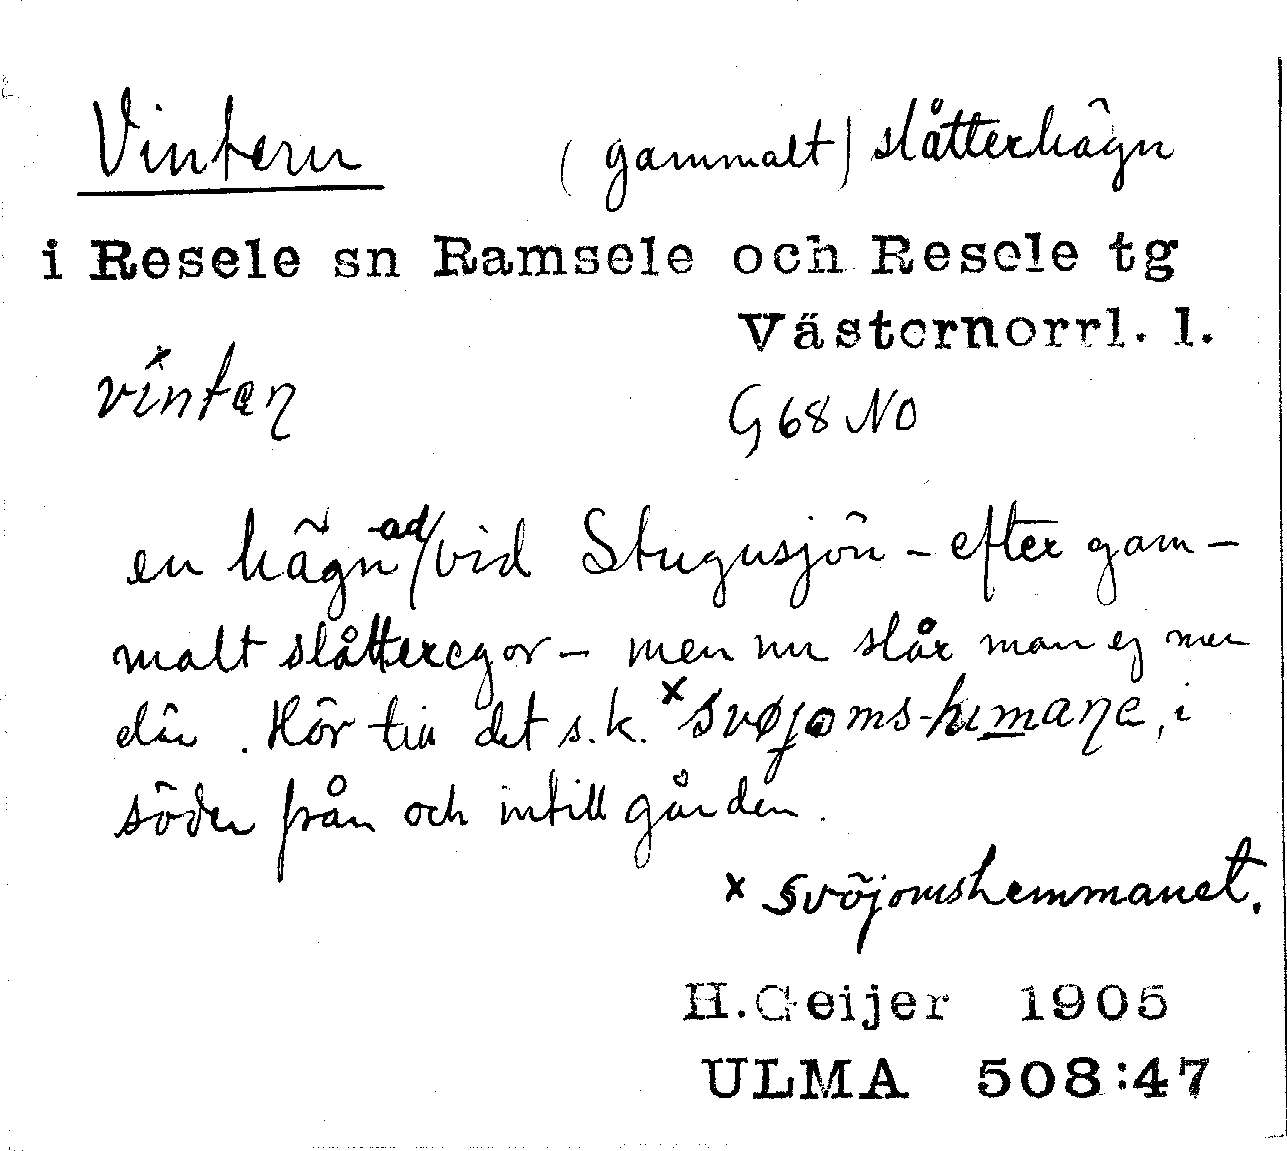 Vintern (gammalt) slåtterhägn
i Resele sn Ramsele och Resele tg
Västernorrl. l.
vintaɳ
G 68 NO
en hägnad vid Stugusjön - efter gam-
malt slåtteregor - men nu slår man ej mer
där. Hör till det s.k. ×svøjoms-himaɳe, i
söder från och intill gården.
× svöjomshemmanet.
H. Geijer 1905
ULMA 508:47